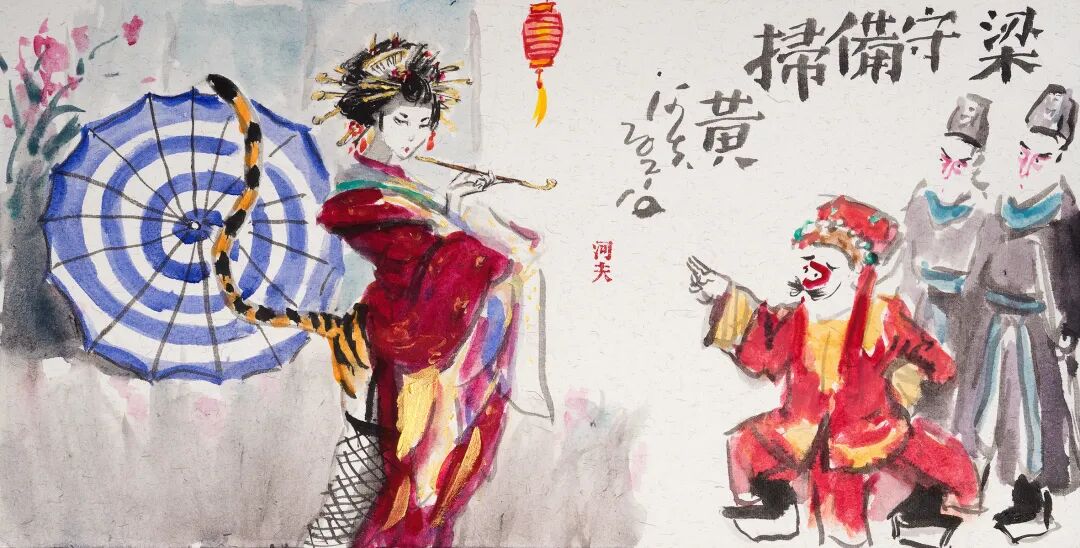 梁守備掃
黃
河夫
河夫